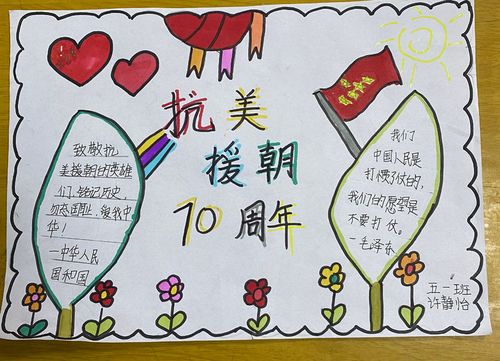 抗美
援朝
70周年
致敬抗
美援朝的英雄
们,铭记历史,
勿忘国耻,爱我中
华!
—中华人民
国和国
我们
中国人民是
打惯了仗的,
我们的愿望是
不要打仗。
—毛泽东
五一班
许静怡